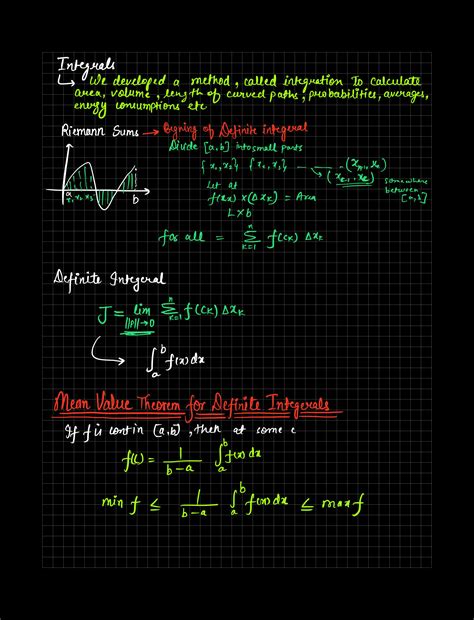 Integrals
↳ We developed a method, called integration To calculate
area, volume, length of curved paths, probabilities, averages,
energy consumptions etc
Riemann Sums → Bigning of Definite integeral
Divide [a,b] into small parts
{x₁,x₂} {x₂,x₃} — — (xₙ₋₁, xₙ)
(xₖ₋₁, xₖ) somewhere
between
[a,b]
Let at
f(cₖ) × (Δxₖ) = Area
L×b
a x₁ x₂ x₃ b
for all = Σₖ₌₁ⁿ f(cₖ) Δxₖ
Definite Integeral
J = lim ||P||→0 Σₖ₌₁ⁿ f(cₖ) Δxₖ
∫ₐᵇ f(x) dx
Mean Value Theorem for Definite Integerals
If f is cont in [a,b], then at some c
f(c) = 1/(b-a) ∫ₐᵇ f(x) dx
min f ≤ 1/(b-a) ∫ₐᵇ f(x) dx ≤ max f